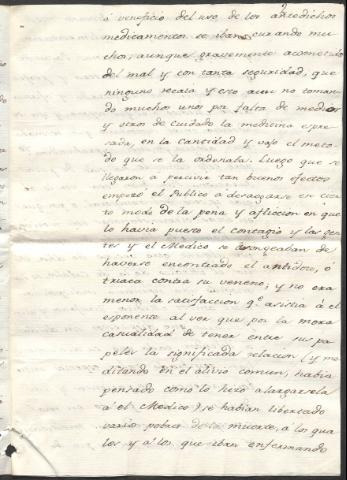 á veneficio del uso de los antedichos
medicamentos se iban curando mu-
chos, aunque gravemente acometidos
del mal y con tanta seguridad, que
ninguno recaia y esto aun no toman-
do muchos unos pa. falta de medios
y otros de cuidado la medicina expre-
sada, en la cantidad y vajo el meto-
do que se la ordenaba. Luego que se
llegaron a percivir tan buenos efectos
empezó el Publico a desaogarse en cier-
to modo de la pena y afliccion en que
lo havia puesto el contagio y las gen-
tes y el Medico se lisongeaban de
haverse encontrado el antidoto, ó
triaca contra su veneno; y no era
menor la satisfaccion qe. asistia á el
esponente al ver que por la mera
casualidad de tener entre sus pa-
peles la significada relacion (y me-
ditando en el alivio comun, havia
pensado como lo hizo alargarsela
á el Medico) se habian libertado
varios pobres de la muerte, a los qua-
les y a los que iban enfermando